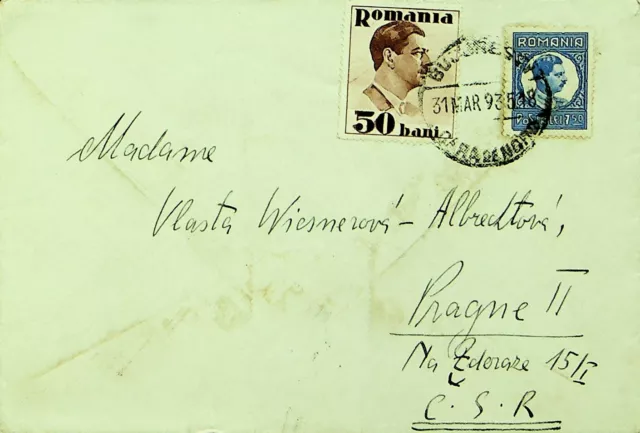 Romania
50 bani
ROMANIA
POSTA LEI 7.50
BUCUREȘTI
31 MAR 935 18
GARA DE NORD
Madame
Vlasta Wiesnerová - Albrechtová,
Prague II
Na Zderaze 15/I
C. S. R